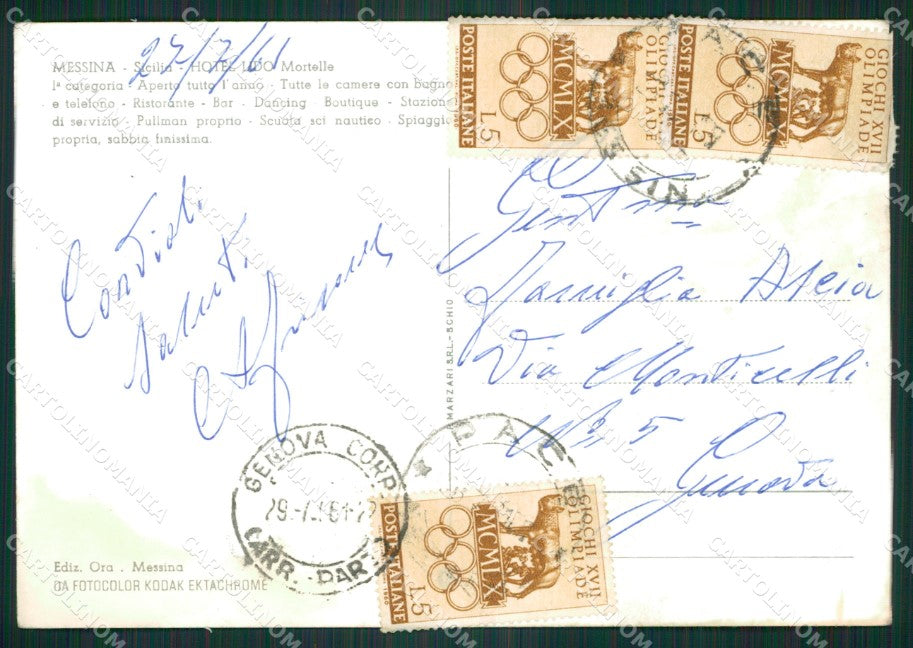 27/7/61
MESSINA - Sicilia - HOTEL LIDO Mortelle
Iª categoria - Aperto tutto l'anno - Tutte le camere con bagno
e telefono - Ristorante - Bar - Dancing - Boutique - Stazion
di servizio - Pullman proprio - Scuola sci nautico - Spiaggia
propria, sabbia finissima.
GIOCHI XVII
OLIMPIADE
MCMLX
POSTE ITALIANE
L.5
GIOCHI XVII
OLIMPIADE
MCMLX
POSTE ITALIANE
L.5
Cordiali
saluti
Famiglia
Via Monticelli
N° 5
Genova
MARZARI S.R.L. - SCHIO
GENOVA CORR.
29.-7.1961-
ARR. PAR
GIOCHI XVII
OLIMPIADE
MCMLX
POSTE ITALIANE
L.5
Ediz. Ora . Messina
DA FOTOCOLOR KODAK EKTACHROME
CARTOLINOMANIA